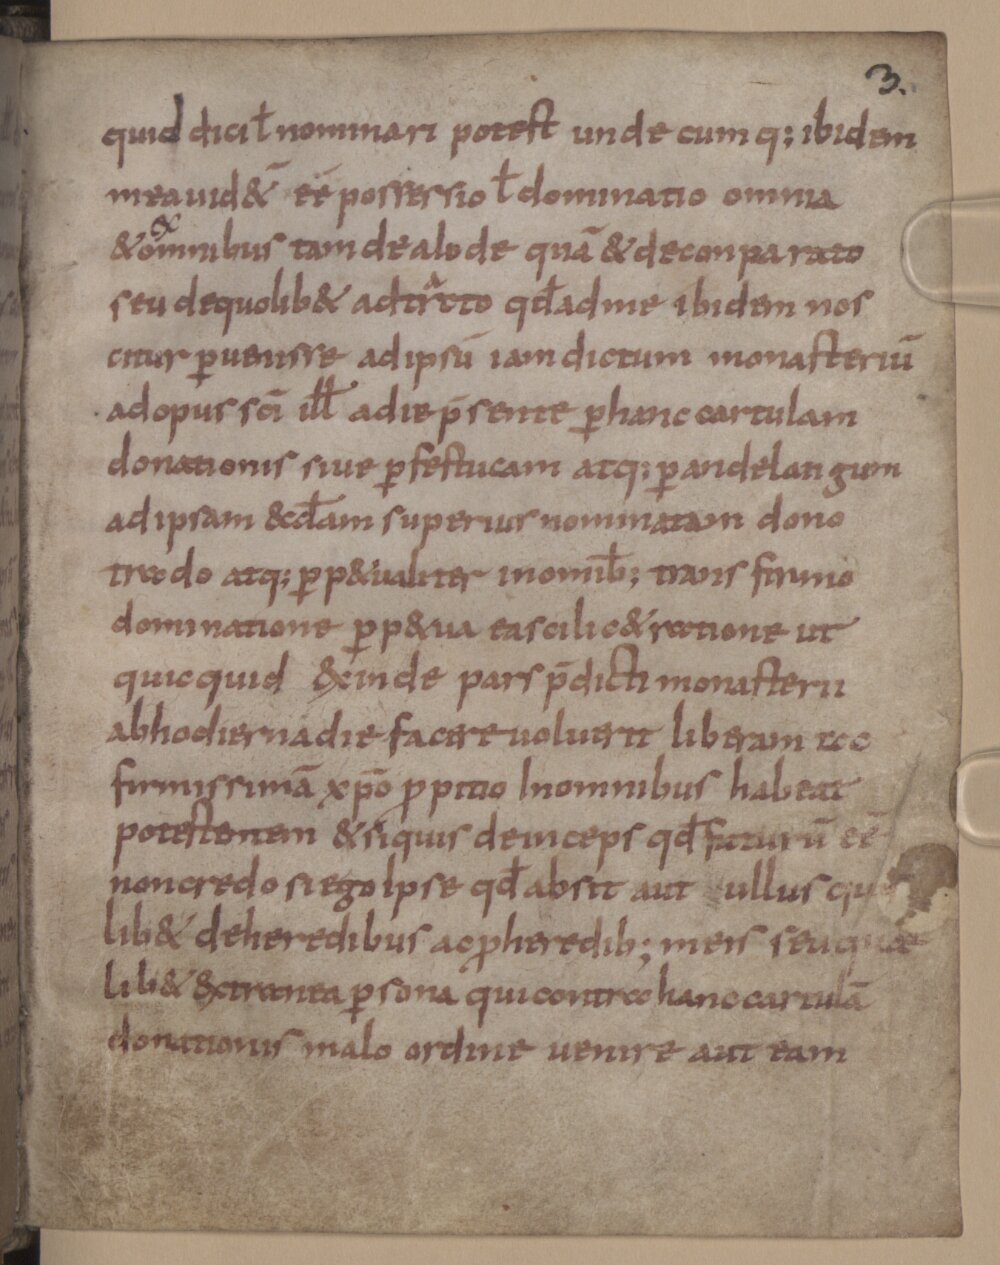 3.
quid dici ł nominari potest unde cumq; ibidem
mea uid&̄ eē possessio ł dominatio omnia
ex
& omnibus tam de alode quā & de conparato
seu de quolib& adtracto qđ ad me ibidem nos
citur ꝑuenisse ad ipsū iam dictum monasteriū
ad opus sc̄i ill̄ a die p̄sente ꝑ hanc cartulam
donationis siue ꝑ festucam atq; ꝑ andelangum
ad ipsam &cđam superius nominatam dono
trado atq; ꝑp&ualiter inomīb; transfirmo
dominatione ꝑp&ua eas cilic& ratione ut
quicquid &xinde pars p̄dicti monasterii
ab hodierna die facere uoluerit liberam ac
firmissimā xp̄o ꝓpitio In omnibus habeat
potestentem & siquis deinceps qđ futurū eē
non credo si ego Ipse qđ absit aut ullus
lib& deheredibus ac ꝓheredib; meis seu
lib& &xtranea ꝑsona qui contra hanc cartulā
donationis malo ordine uenire aut eam